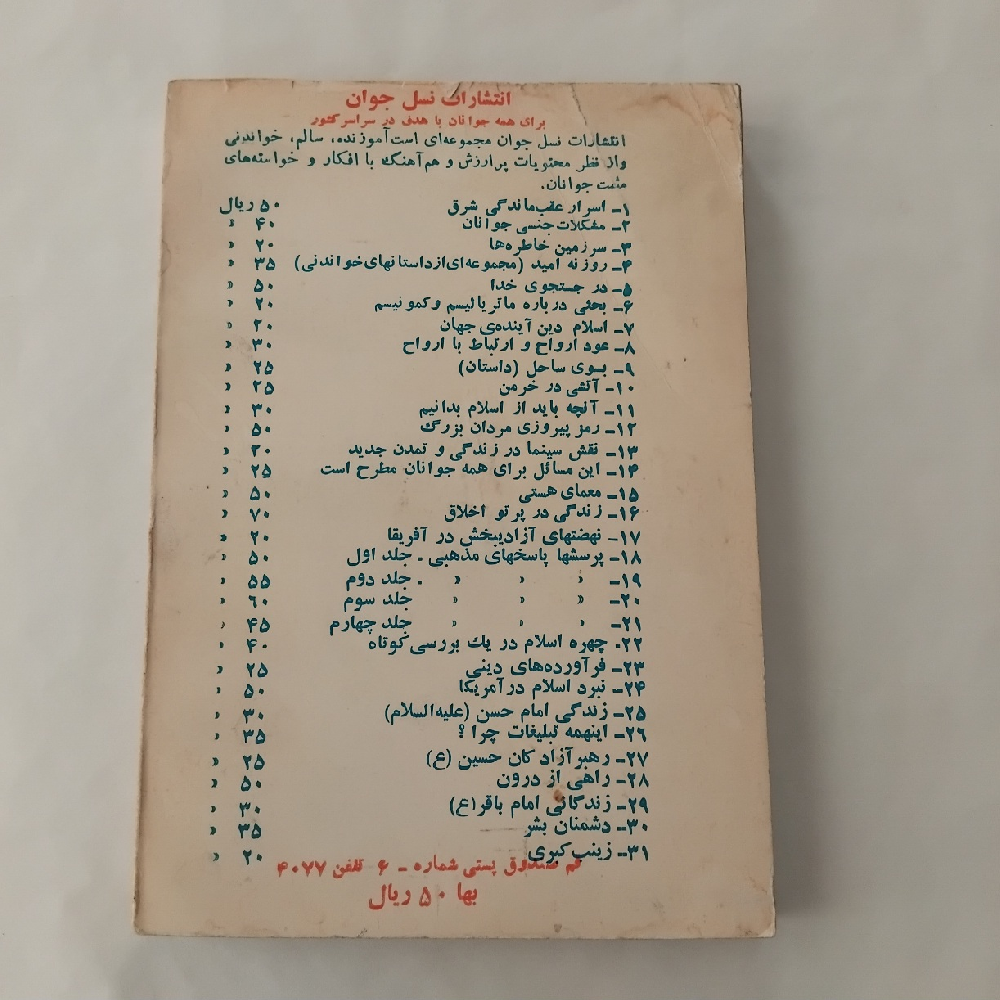 انتشارات نسل جوان
برای همه جوانان با هدف در سراسر کشور
انتشارات نسل جوان مجموعه‌ای است آموزنده، سالم، خواندنی
واز نظر محتویات پرارزش و هم‌آهنگ با افکار و خواسته‌های
مثبت جوانان.
۱ـ اسرار عقب‌ماندگی شرق ۵۰ ریال
۲ـ مشکلات جنسی جوانان ۴۰ «
۳ـ سرزمین خاطره‌ها ۲۰ «
۴ـ روزنه امید (مجموعه‌ای از داستانهای خواندنی) ۳۵ «
۵ـ در جستجوی خدا ۵۰ «
۶ـ بحثی درباره ماتریالیسم و کمونیسم ۲۰ «
۷ـ اسلام دین آینده‌ی جهان ۲۰ «
۸ـ عود ارواح و ارتباط با ارواح ۳۰ «
۹ـ بسوی ساحل (داستان) ۲۵ «
۱۰ـ آتشی در خرمن ۲۵ «
۱۱ـ آنچه باید از اسلام بدانیم ۳۰ «
۱۲ـ رمز پیروزی مردان بزرگ ۵۰ «
۱۳ـ نقش سینما در زندگی و تمدن جدید ۲۰ «
۱۴ـ این مسائل برای همه جوانان مطرح است ۲۵ «
۱۵ـ معمای هستی ۵۰ «
۱۶ـ زندگی در پرتو اخلاق ۷۰ «
۱۷ـ نهضتهای آزادیبخش در آفریقا ۲۰ «
۱۸ـ پرسشها پاسخهای مذهبی ـ جلد اول ۵۰ «
۱۹ـ « « « ـ جلد دوم ۵۵ «
۲۰ـ « « « جلد سوم ۶۰ «
۲۱ـ « « « جلد چهارم ۴۵ «
۲۲. چهره اسلام در یك بررسی کوتاه ۴۰ «
۲۳ـ فرآورده‌های دینی ۲۵ «
۲۴ـ نبرد اسلام در آمریکا ۵۰ «
۲۵ـ زندگی امام حسن (علیه‌السلام) ۳۰ «
۲۶ـ اینهمه تبلیغات چرا ؟ ۳۵ «
۲۷ـ رهبر آزادگان حسین (ع) ۲۵ «
۲۸ـ راهی از درون ۵۰ «
۲۹ـ زندگانی امام باقر(ع) ۳۰ «
۳۰ـ دشمنان بشر ۳۵ «
۳۱ـ زینب کبری ۲۰ «
قم صندوق پستی شماره ـ ۶ تلفن ۴۰۷۷
بها ۵۰ ریال